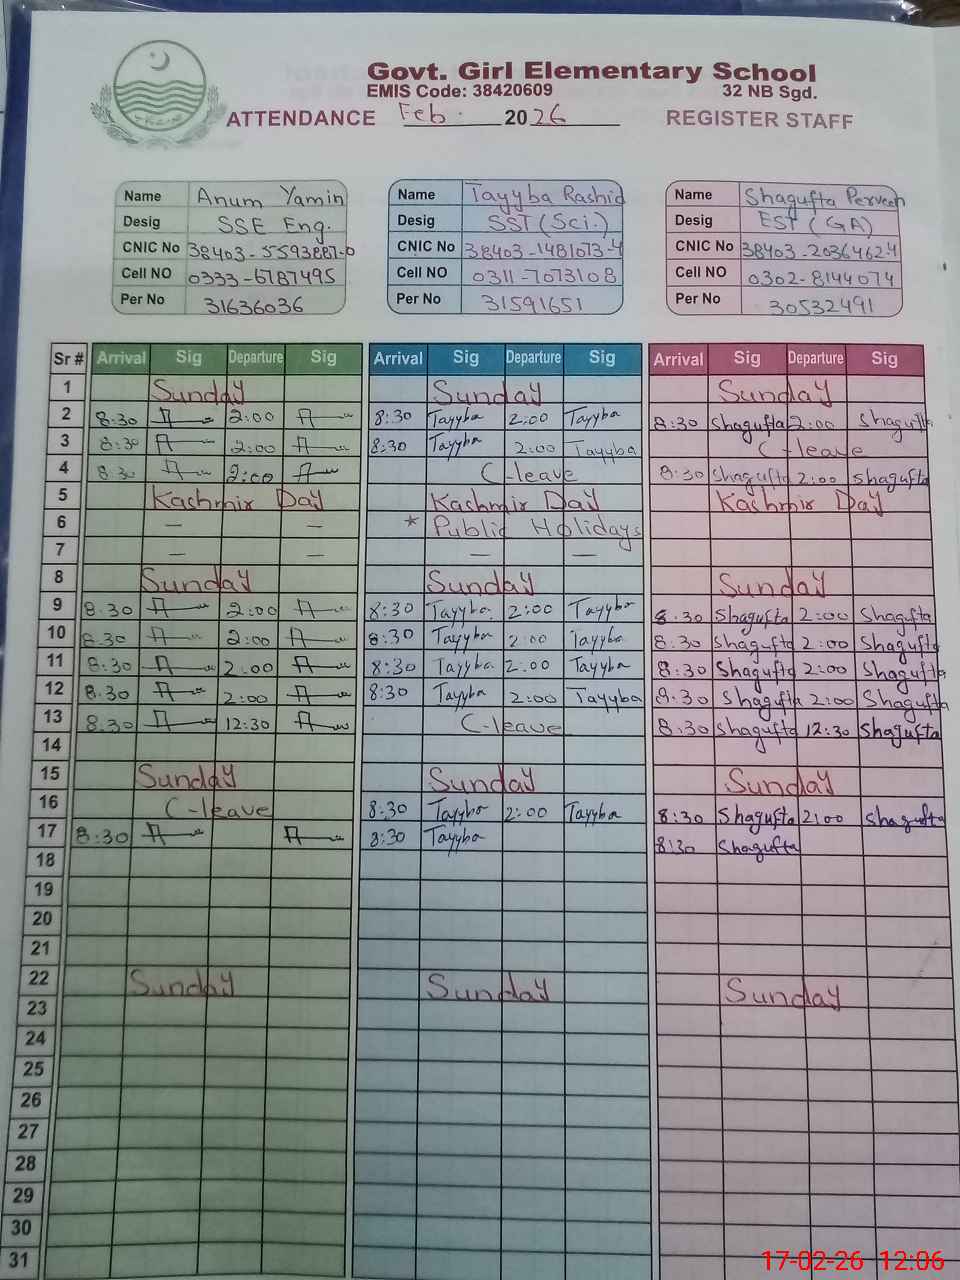 Govt. Girl Elementary School
EMIS Code: 38420609 32 NB Sgd.
ATTENDANCE Feb. 2026 REGISTER STAFF
Name Anum Yamin Name Tayyba Rashid Name Shagufta Perveen
Desig SSE Eng. Desig SST (Sci.) Desig EST (GA)
CNIC No 38403-5593887-0 CNIC No 38403-1481073-4 CNIC No 38403-2036462-4
Cell NO 0333-6787495 Cell NO 0311-7073108 Cell NO 0302-8144074
Per No 31636036 Per No 31591651 Per No 30532491
Sr # Arrival Sig Departure Sig Arrival Sig Departure Sig Arrival Sig Departure Sig
1 Sunday Sunday Sunday
2 8:30 2:00 8:30 Tayyba 2:00 Tayyba 8:30 Shagufta 2:00 Shagufta
3 8:30 2:00 8:30 Tayyba 2:00 Tayyba C-leave
4 8:30 2:00 C-leave 8:30 Shagufta 2:00 Shagufta
5 Kashmir Day Kashmir Day Kashmir Day
6 — — * Public Holidays
7 — — — —
8 Sunday Sunday Sunday
9 8:30 2:00 8:30 Tayyba 2:00 Tayyba 8:30 Shagufta 2:00 Shagufta
10 8:30 2:00 8:30 Tayyba 2:00 Tayyba 8:30 Shagufta 2:00 Shagufta
11 8:30 2:00 8:30 Tayyba 2:00 Tayyba 8:30 Shagufta 2:00 Shagufta
12 8:30 2:00 8:30 Tayyba 2:00 Tayyba 8:30 Shagufta 2:00 Shagufta
13 8:30 12:30 C-leave 8:30 Shagufta 12:30 Shagufta
14
15 Sunday Sunday Sunday
16 C-leave 8:30 Tayyba 2:00 Tayyba 8:30 Shagufta 2:00 Shagufta
17 8:30 8:30 Tayyba 8:30 Shagufta
18
19
20
21
22 Sunday Sunday Sunday
23
24
25
26
27
28
29
30
31
17-02-26 12:06